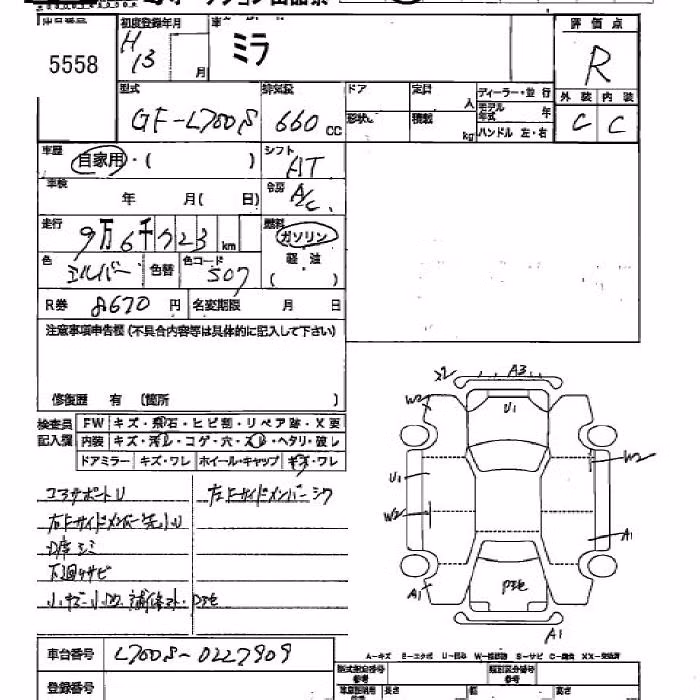 初度登録年月
車
評価点
5558
H13
月
ミラ
R
外装 内装
C C
型式
排気量
ドア
定員
人
ディーラー・並行
GF-L700S
660 CC
形状
積載
kg
モデル年式
年
ハンドル 左・右
車歴
自家用・( )
シフト
AT
車検
年 月( 日)
冷房
A/C
走行
9万6千723 km
燃料
ガソリン
軽油
( )
色
シルバー
色替
色コード
507
R券 8670 円
名変期限 月 日
注意事項申告欄(不具合内容等は具体的に記入して下さい)
修復歴 有 (箇所 )
検査員記入欄
FW キズ・飛石・ヒビ割・リペア跡・X要
内装 キズ・汚レ・コゲ・穴・スレ・ヘタリ・破レ
ドアミラー キズ・ワレ ホイール・キャップ キズ・ワレ
コアサポートU
左Fサイドメンバーシワ
右Fサイドメンバー先小U
内席シミ
下廻りサビ
A3
W2
U1
W2
U1
W2
A1
A1
A1
車台番号
L700S-0227909
登録番号
型式指定番号
類別区分番号
長さ
幅
高さ